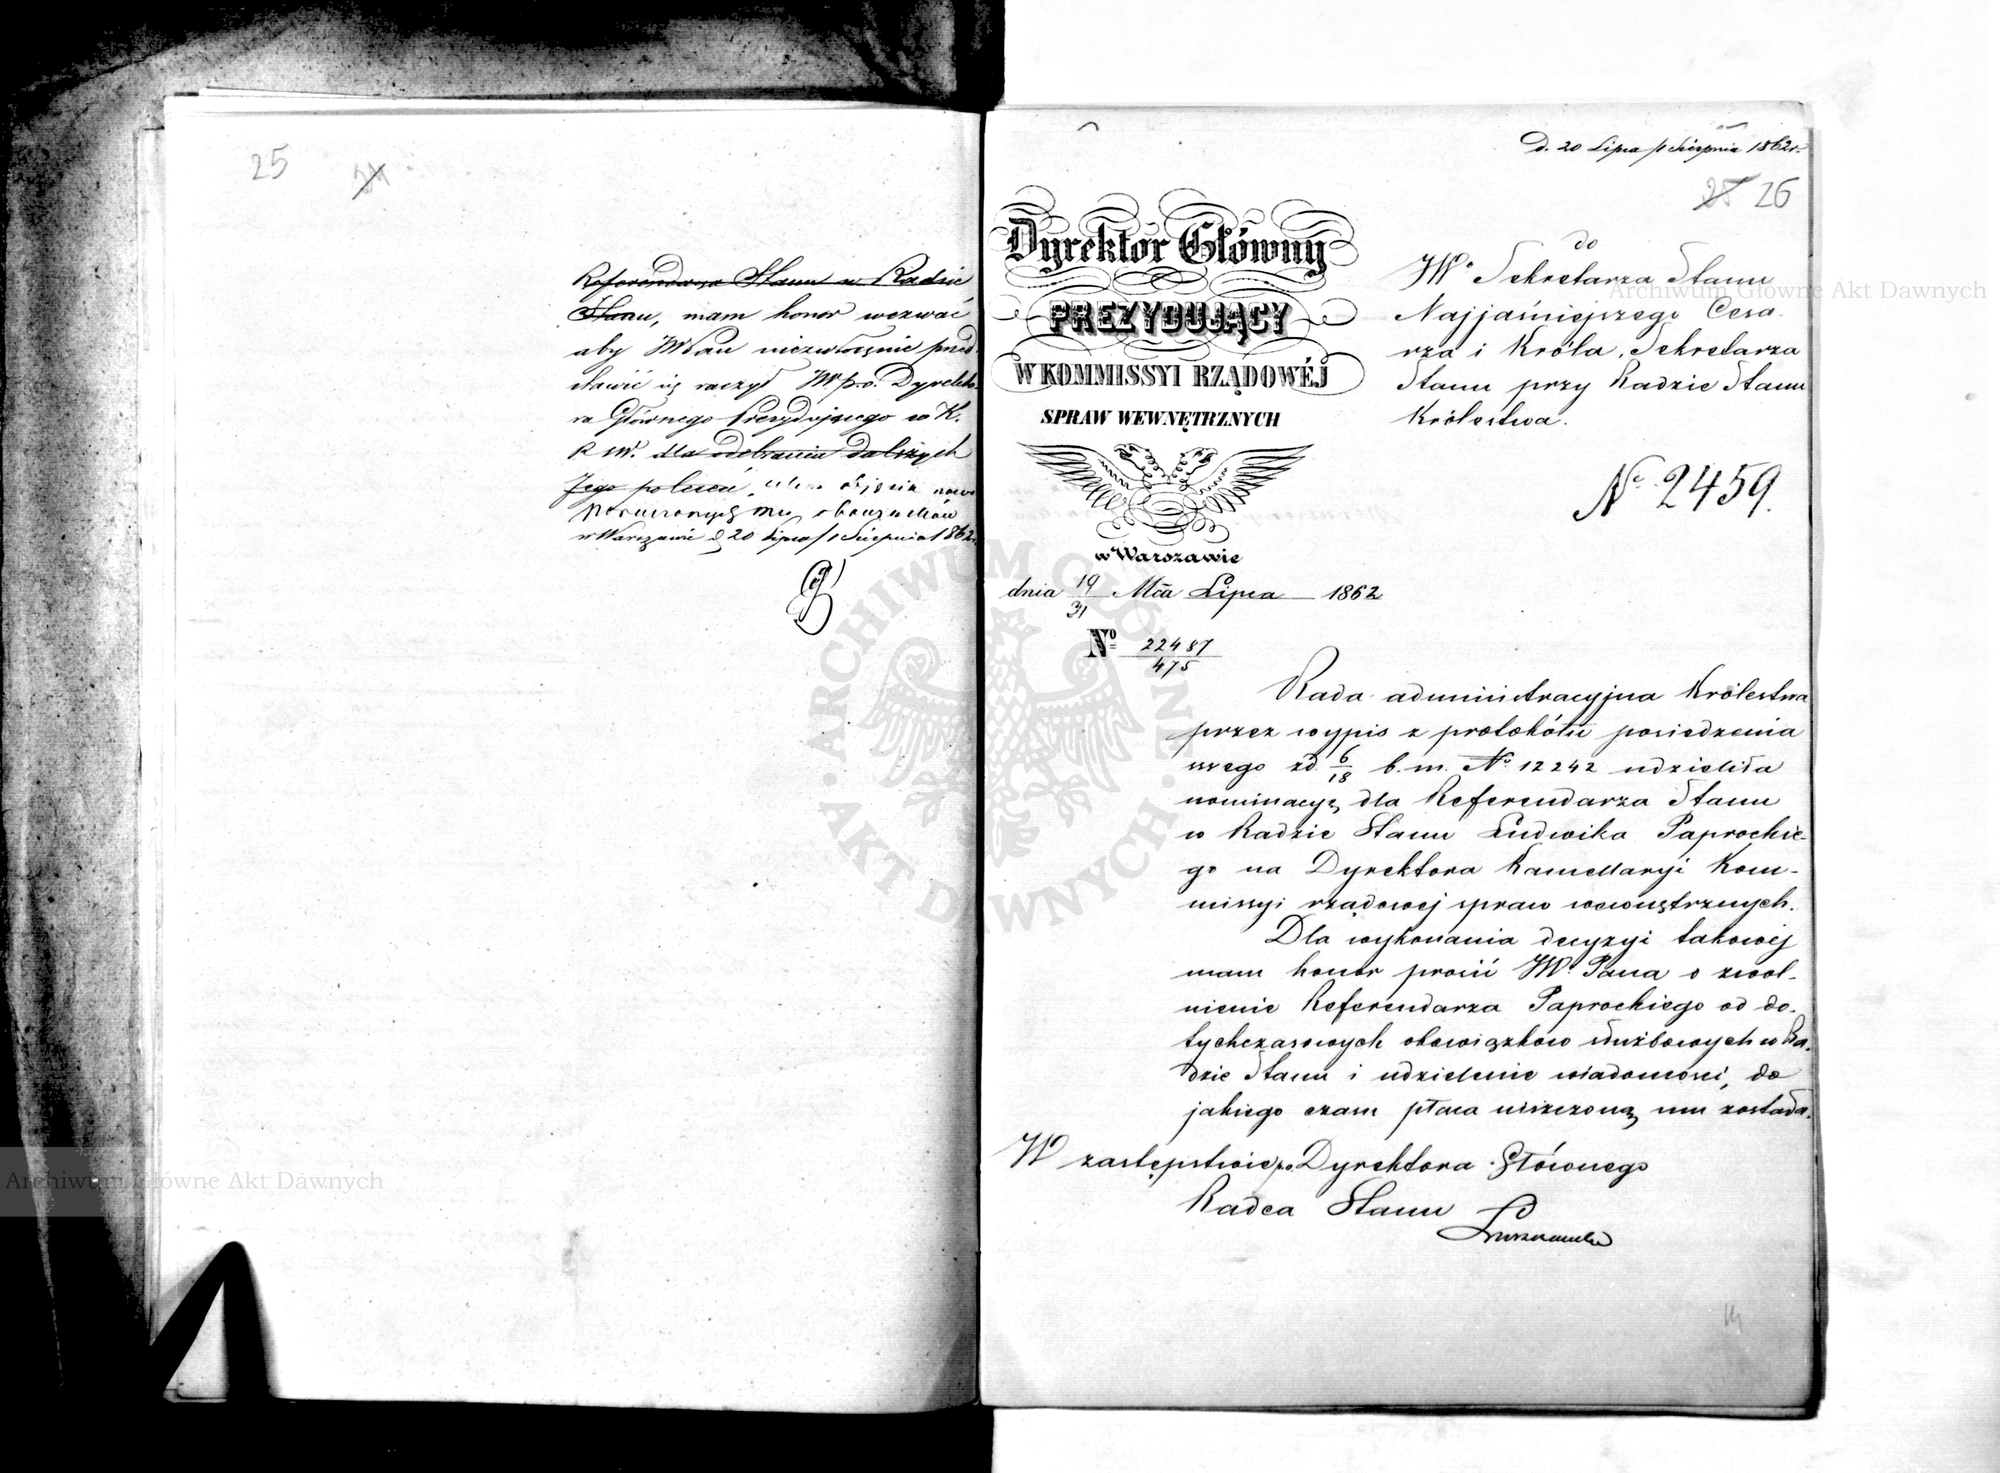 25
Referendarza Stanu w Radzie
Stanu, mam honor wezwać
aby WPan niezwłocznie przed
stawić się raczył JW p.o. Dyrekto
ra Głównego Prezydującego w K.
R. S. W. dla odebrania dalszych
Jego poleceń, celem objęcia nowo
poruczonych mu obowiązków
w Warszawie d. 20 Lipca/1 Sierpnia 1862 r.
D. 20 Lipca/1 Sierpnia 1862 r.
25 26
Dyrektor Główny
PREZYDUJĄCY
W KOMMISSYI RZĄDOWÉJ
SPRAW WEWNĘTRZNYCH
w Warszawie
dnia 19/31 Mca Lipca 1862
No 22487/475
do
JWo Sekretarza Stanu
Najjaśniejszego Cesa-
rza i Króla, Sekretarza
Stanu przy Radzie Stanu
Królestwa.
No 2459.
Rada administracyjna Królestwa
przez wypis z protokółu posiedzenia
swego zd 6/18 b.m. No 12242 udzieliła
nominacyę dla Referendarza Stanu
w Radzie Stanu Ludwika Paprockie-
go na Dyrektora Kancellaryi Kom-
missyi rządowej spraw wewnętrznych.
Dla wykonania decyzyi takowéj
mam honor prosić JW. Pana o zwol-
nienie Referendarza Paprockiego od do-
tychczasowych obowiązków służbowych w Ra-
dzie Stanu i udzielenie wiadomości, do
jakiego czasu płaca uiszczoną mu została.
W zastępstwie p.o. Dyrektora Głównego
Radca Stanu
14
Archiwum Główne Akt Dawnych
Archiwum Główne Akt Dawnych
ARCHIWUM GŁÓWNE AKT DAWNYCH